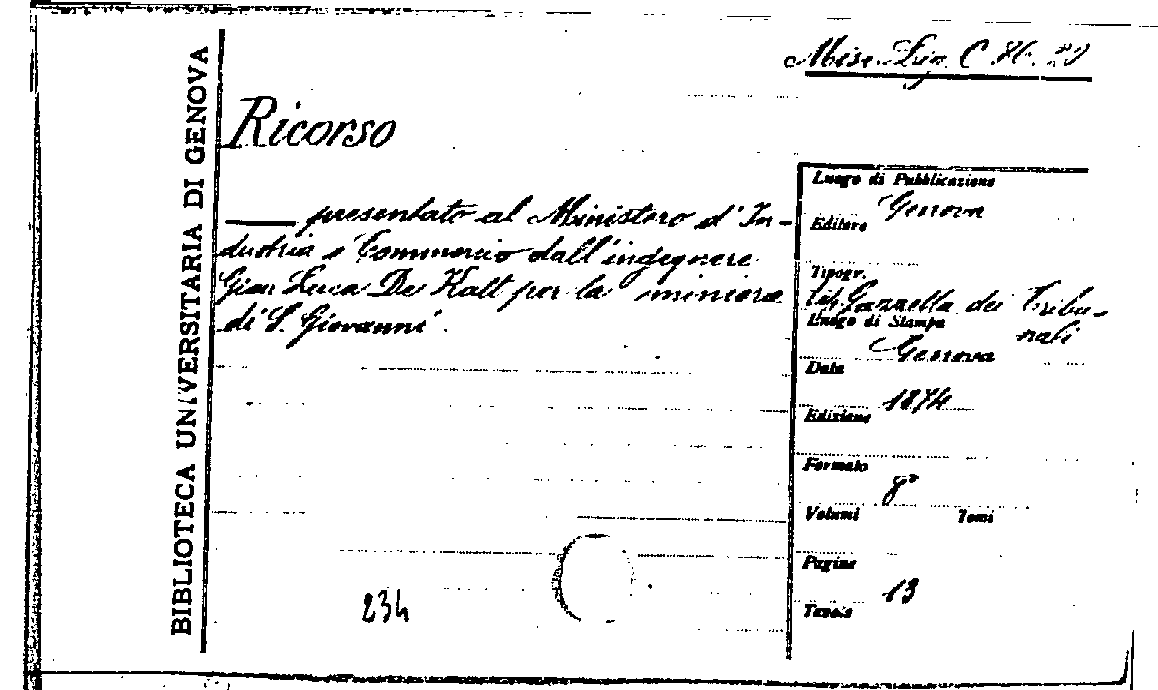 Misc. Lig. C 86. 20
BIBLIOTECA UNIVERSITARIA DI GENOVA
Ricorso
presentato al Ministero d'In-
dustria e Commercio dall'ingegnere
Gian Luca De Katt per la miniera
di S. Giovanni.
234
Luogo di Pubblicazione
Genova
Editore
Tipogr.
tip. Gazzetta dei Tribu-
nali
Luogo di Stampa
Genova
Data
1874
Edizione
Formato
8°
Volumi Tomi
Pagine
13
Tavole